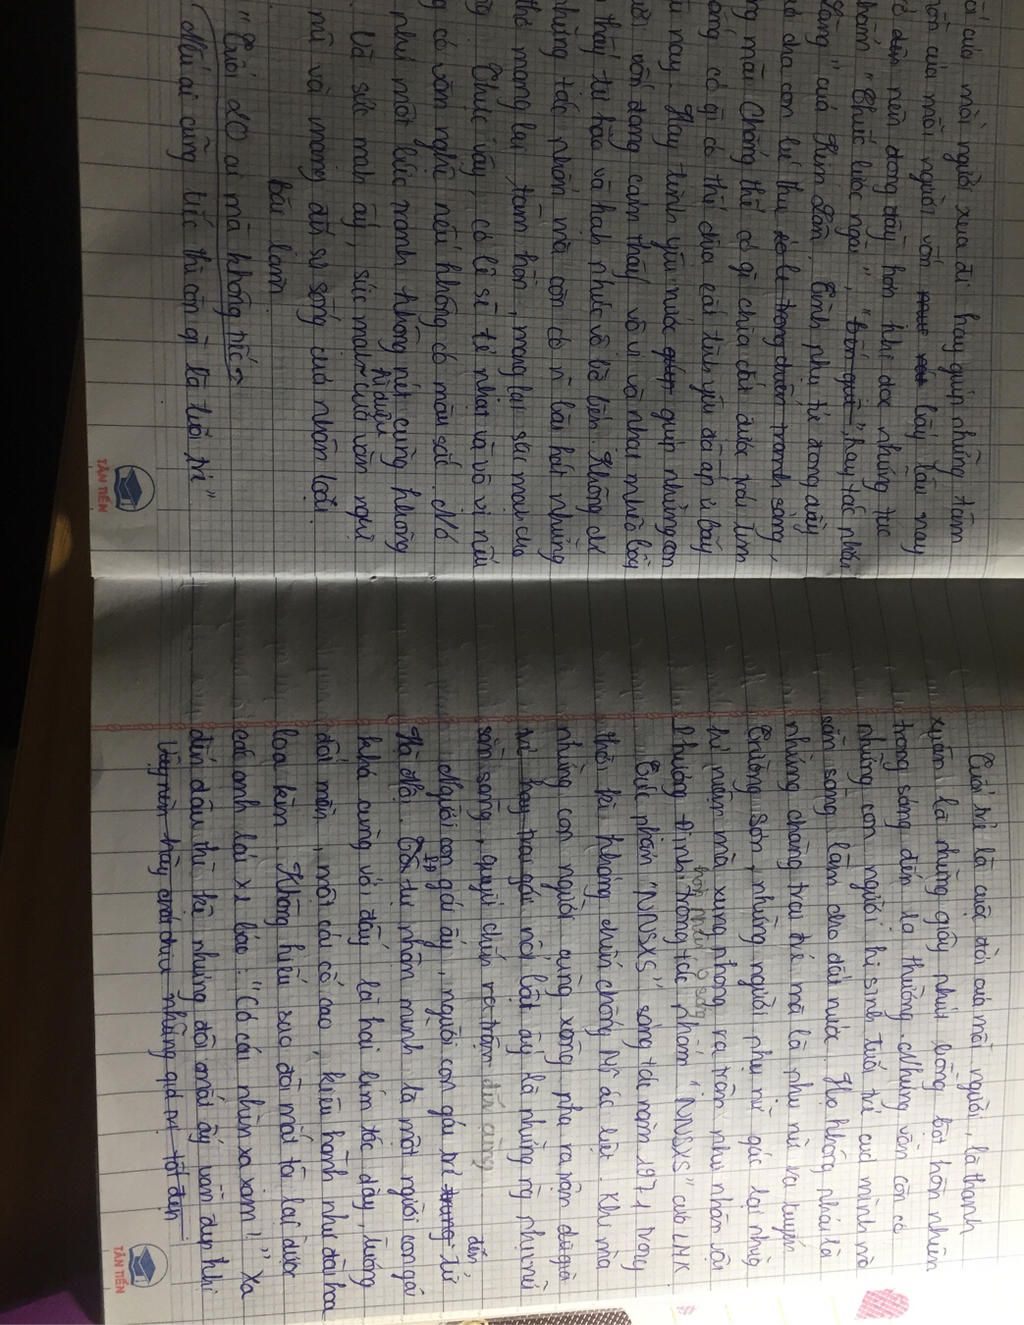 cả của mỗi người xưa đi hay giúp những tâm
hồn của mỗi người vốn bấy lâu nay
nên dong đầy hơn khi đọc những tác
phẩm "Chiếc lược ngà", "Bến quê", hay tác phẩm
"Làng" của Kim Lân, tình phụ tử dong đầy
cha con bé thu tranh sáng,
mẫu Chẳng thể có gì chia cắt được trái tim
có gì có thể chia cắt tình yêu đó ấp ủ bấy
nay. Hay tình yêu nước giúp những con
người vốn đang cảm thấy vô vị và nhạt nhẽo bỗng
thấy tự hào và hạnh phúc vô bờ bến. Không chỉ
những tác phẩm mà còn có n bài hát những
thơ mang lại tâm hồn, mang lại sức mạnh cho
Chiếc vậy, có lẽ sẽ tẻ nhạt và vô vị nếu
có văn nghệ nếu không có màu sắc. Nó
như một bức tranh không nét cũng không
Và sức mạnh ấy, sức mạnh kì diệu của văn nghệ
mãi và mang đến sự sống của nhân loại.
Bài làm
"Tuổi 20 ai mà không tiếc
Nếu ai cũng tiếc thì còn gì là tuổi trẻ"
TÂN TIẾN
Tuổi trẻ là cuộc đời của mỗi người, là thanh
xuân là những giây phút bồng bột hồn nhiên
trong sáng đến lạ thường. Nhưng vẫn còn có
những con người hi sinh tuổi trẻ của mình mà
sẵn sàng làm cho đất nước. Họ không phải là
những chàng trai trẻ mà là phụ nữ ra tuyến
Trường Sơn, những người phụ nữ gác lại những
kỉ niệm mà xung phong ra trận như nhân vật
Phương Định trong tác phẩm "NNSXS" của LMK
Tác phẩm "NNSXS" sáng tác năm 1971 trong
thời kì kháng chiến chống Mĩ ác liệt. Khi mà
những con người cùng xông pha ra trận
hay trai gái nổi bật ấy là những ng phụ nữ
sẵn sàng, quyết chiến ra trận đến cùng
Người con gái ấy, người con gái trẻ đến từ
Hà Nội. PĐ tự nhận mình là một người con gái
khá cứng và đấy là hai bím tóc dày, tương
đối mềm, một cái cổ cao, kiêu hãnh như đài hoa
loa kèn. Không hiểu sao đôi mắt tôi lại được
các anh lái xe bảo: "Cô có cái nhìn xa xăm!" Xa
đến đâu thì kệ nhưng đôi mắt ấy vẫn đẹp khi
những gì tốt đẹp
TÂN TIẾN